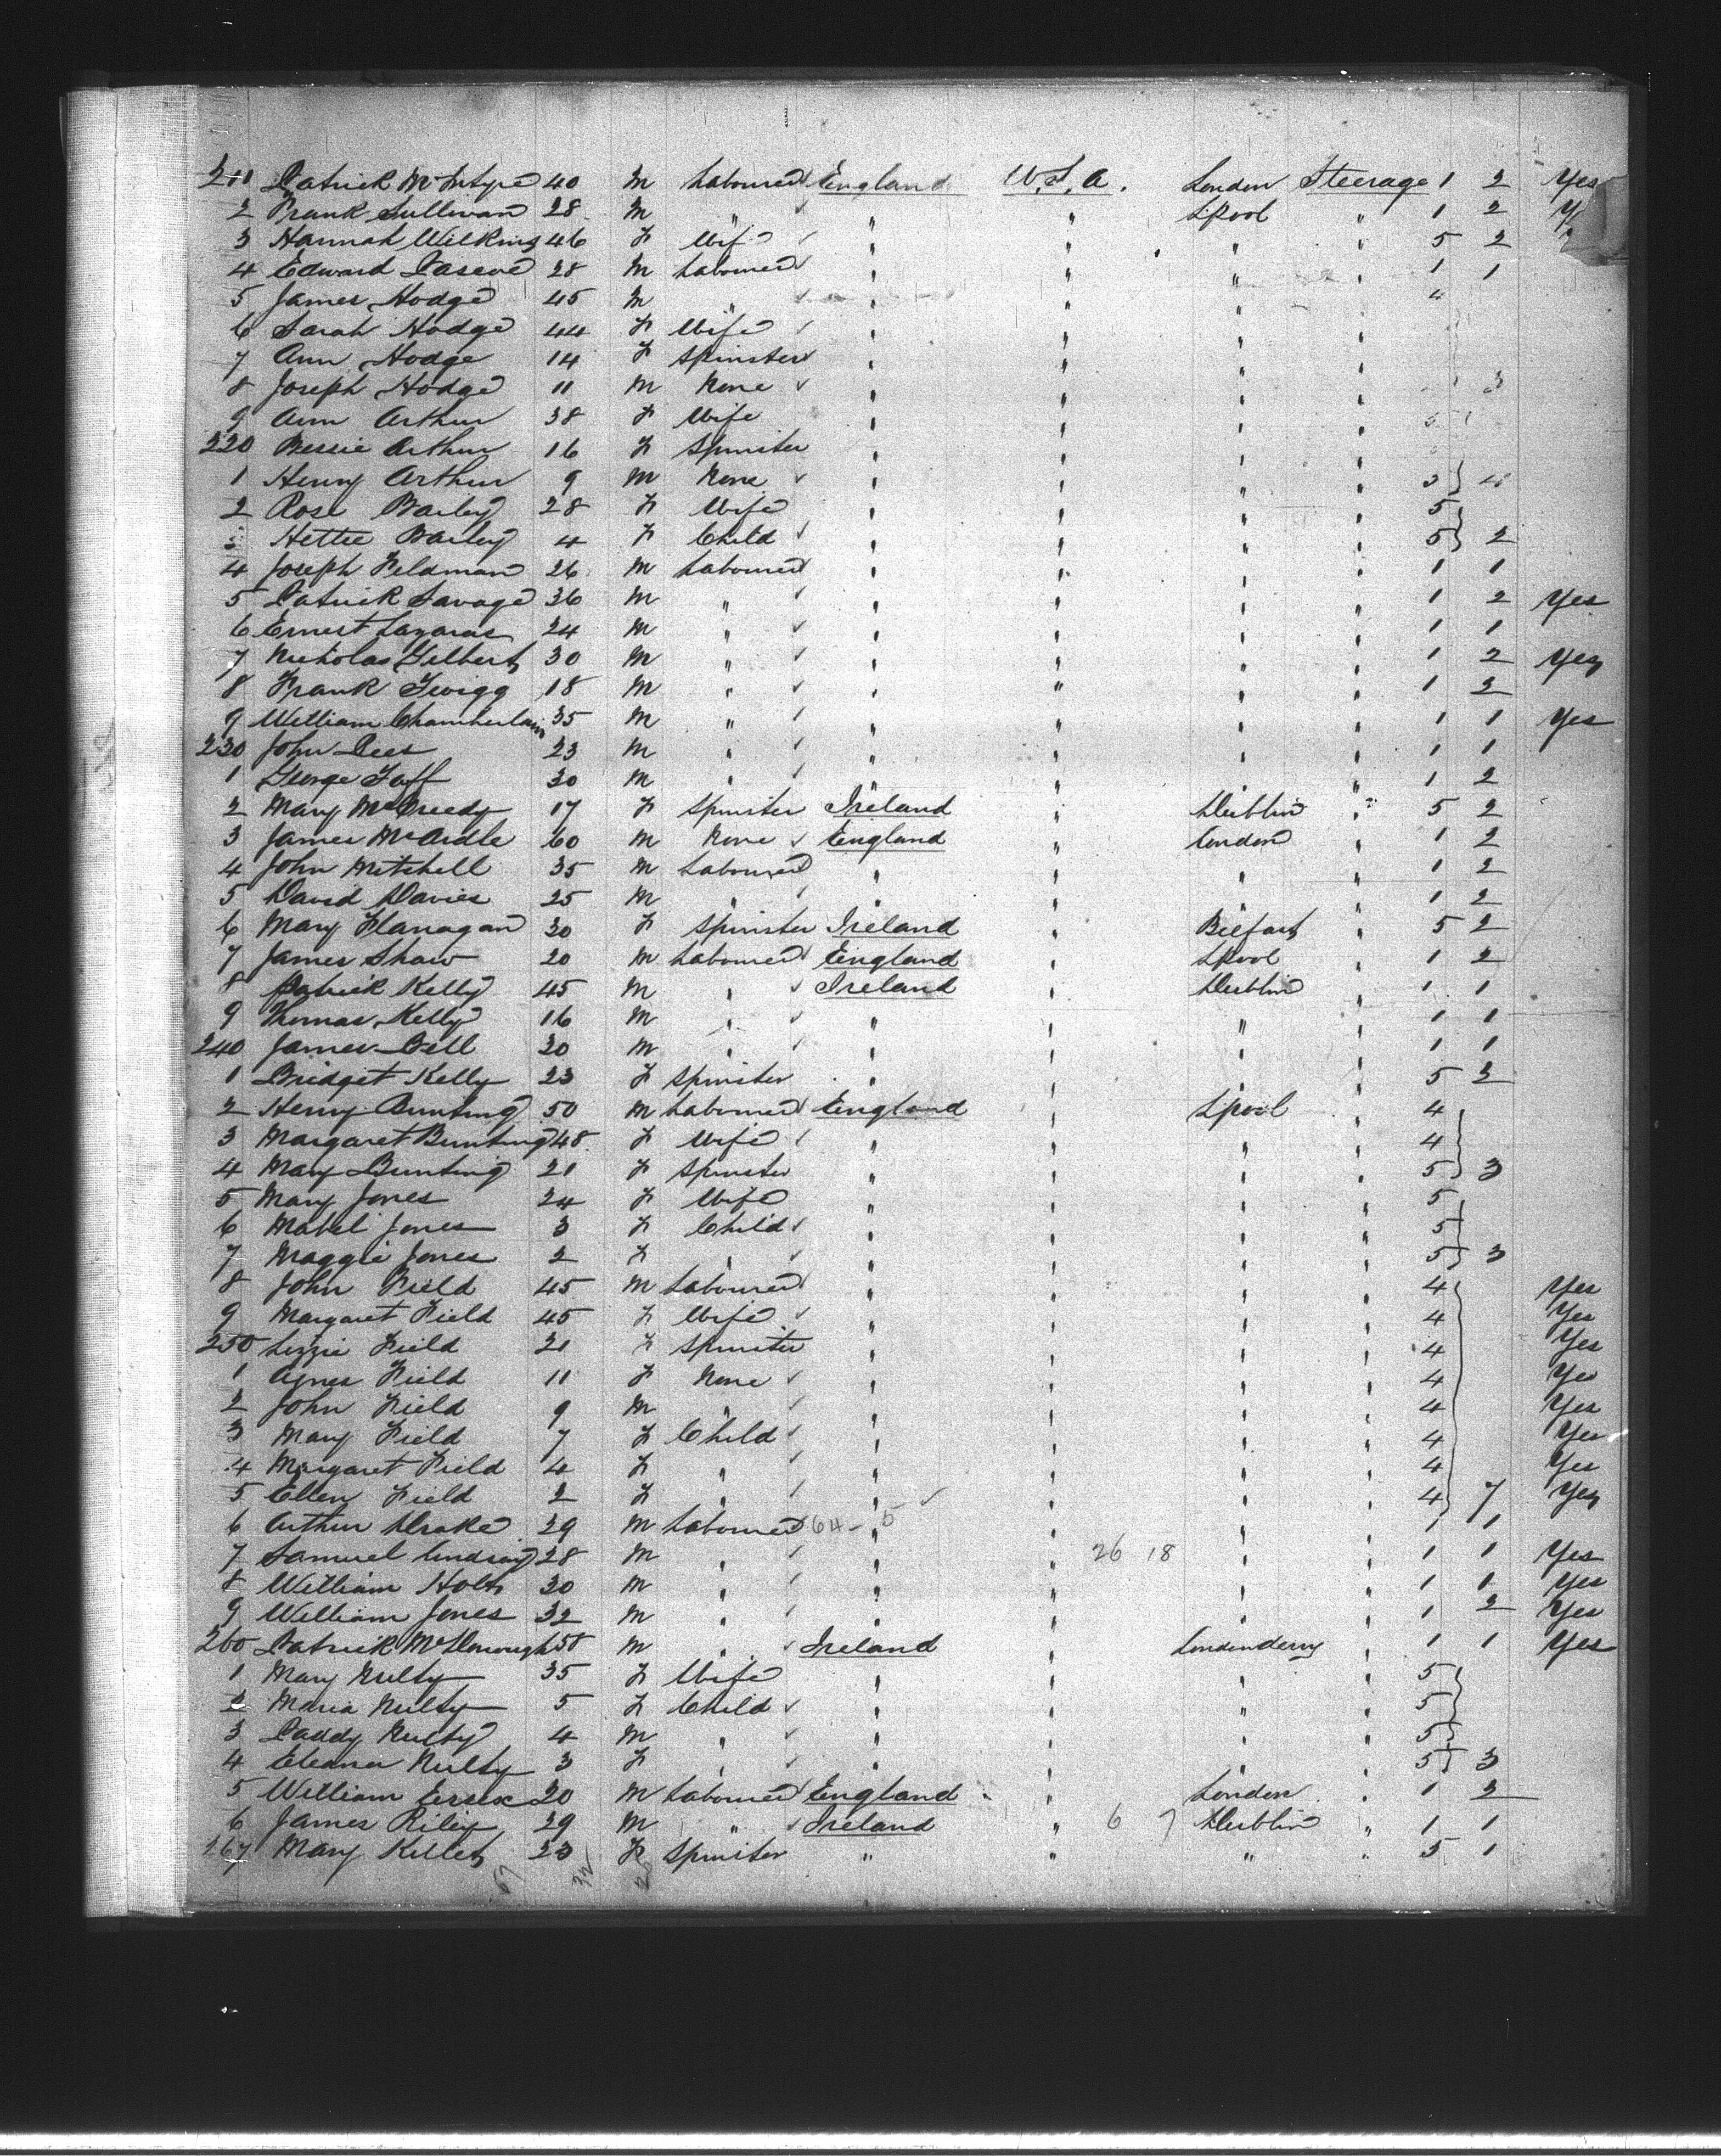 211 Patrick McIntyre 40 M Labourer England U.S.A. London Steerage 1 2 Yes
2 Frank Sullivan 28 M " " " L'Pool " 1 2
3 Hannah Wilkins 46 F Wife " " " " 5 2
4 Edward 28 M Labourer " " " " 1 1
5 James Hodge 45 M " " " " " 4
6 Sarah Hodge 44 F Wife " " " "
7 Ann Hodge 14 F Spinster " " " "
8 Joseph Hodge 11 M None " " " " 3
9 Ann Arthur 38 F Wife " " " " 5
220 Bessie Arthur 16 F Spinster " " " "
1 Henry Arthur 9 M None " " " "
2 Rose Bailey 28 F Wife " " " " 5
3 Hettie Bailey 4 F Child " " " " 5 2
4 Joseph Feldman 26 M Labourer " " " " 1 1
5 Patrick Savage 36 M " " " " " 1 2 Yes
6 Ernest Lazarus 24 M " " " " " 1 1
7 Nicholas Gilbert 30 M " " " " " 1 2 Yes
8 Frank Twigg 18 M " " " " " 1 2
9 William Chamberlain 35 M " " " " " 1 1 Yes
230 John Lees 23 M " " " " " 1 1
1 George Taff 30 M " " " " " 1 2
2 Mary McCreedy 17 F Spinster Ireland " Dublin " 5 2
3 James McArdle 60 M None England " London " 1 2
4 John Mitchell 35 M Labourer " " " " 1 2
5 David Davies 25 M " " " " " 1 2
6 Mary Flanagan 30 F Spinster Ireland " Belfast " 5 2
7 James Shaw 20 M Labourer England " L'Pool " 1 2
8 Patrick Kelly 45 M " Ireland " Dublin " 1 1
9 Thomas Kelly 16 M " " " " " 1 1
240 James Bell 20 M " " " " " 1 1
1 Bridget Kelly 23 F Spinster " " " " 5 2
2 Henry Bunting 50 M Labourer England " L'pool " 4
3 Margaret Bunting 48 F Wife " " " " 4
4 Mary Bunting 21 F Spinster " " " " 5 3
5 Mary Jones 24 F Wife " " " " 5
6 Mabel Jones 3 F Child " " " " 5
7 Maggie Jones 2 F " " " " " 5 3
8 John Field 45 M Labourer " " " " 4 Yes
9 Margaret Field 45 F Wife " " " " 4 Yes
250 Lizzie Field 21 F Spinster " " " " 4 Yes
1 Agnes Field 11 F None " " " " 4 Yes
2 John Field 9 M " " " " " 4 Yes
3 Mary Field 7 F Child " " " " 4 Yes
4 Margaret Field 4 F " " " " " 4 Yes
5 Ellen Field 2 F " " " " " 4 7 Yes
6 Arthur Drake 29 M Labourer 64 - 5 " " " " 1 1
7 Samuel Lindsay 28 M " " " 26 18 " " 1 1 Yes
8 William Holt 30 M " " " " " 1 1 Yes
9 William Jones 32 M " " " " " 1 2 Yes
260 Patrick McDonough 50 M " Ireland " Londonderry " 1 1 Yes
1 Mary Nulty 35 F Wife " " " " 5
2 Maria Nulty 5 F Child " " " " 5
3 Paddy Nulty 4 M " " " " " 5
4 Eleanor Nulty 3 F " " " " " 5 3
5 William Essex 20 M Labourer England " London " 1 2
6 James Riley 29 M " Ireland " 6 7 Dublin " 1 1
267 Mary Killet 23 F Spinster " " " " 5 1